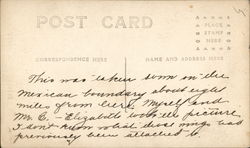 POST CARD
PLACE
STAMP
HERE
CORRESPONDENCE HERE
NAME AND ADDRESS HERE
This was taken down on the
Mexican boundary about eight
miles from here. Myself and
Mr. C. - Elizabeth took the picture
I don't know what dress may had
previously been attached